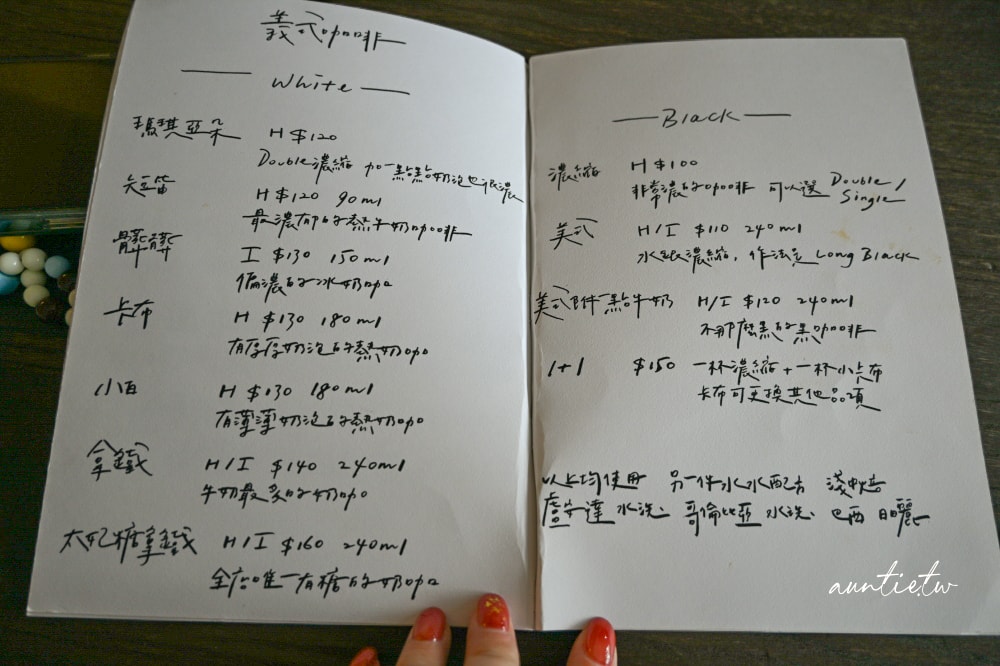 義式咖啡
White
瑪琪亞朵 H $120
Double濃縮 加一點點奶泡也很濃
短笛 H $120 90ml
最濃郁的熱牛奶咖啡
髒髒 I $130 150ml
偏濃的冰奶咖
卡布 H $130 180ml
有厚厚奶泡的熱奶咖
小白 H $130 180ml
有薄薄奶泡的熱奶咖
拿鐵 H/I $140 240ml
牛奶最多的奶咖
太妃糖拿鐵 H/I $160 240ml
全店唯一有糖的奶咖
Black
濃縮 H $100
非常濃的咖啡 可以選 Double/
Single
美式 H/I $110 240ml
水跟濃縮，作法是 Long Black
美式附一點牛奶 H/I $120 240ml
不那麼黑的黑咖啡
1+1 $150 一杯濃縮+一杯小卡布
卡布可更換其他品項
以上均使用 另一件水水配方 淺中焙
盧安達 水洗、哥倫比亞 水洗、巴西 日曬
auntie.tw